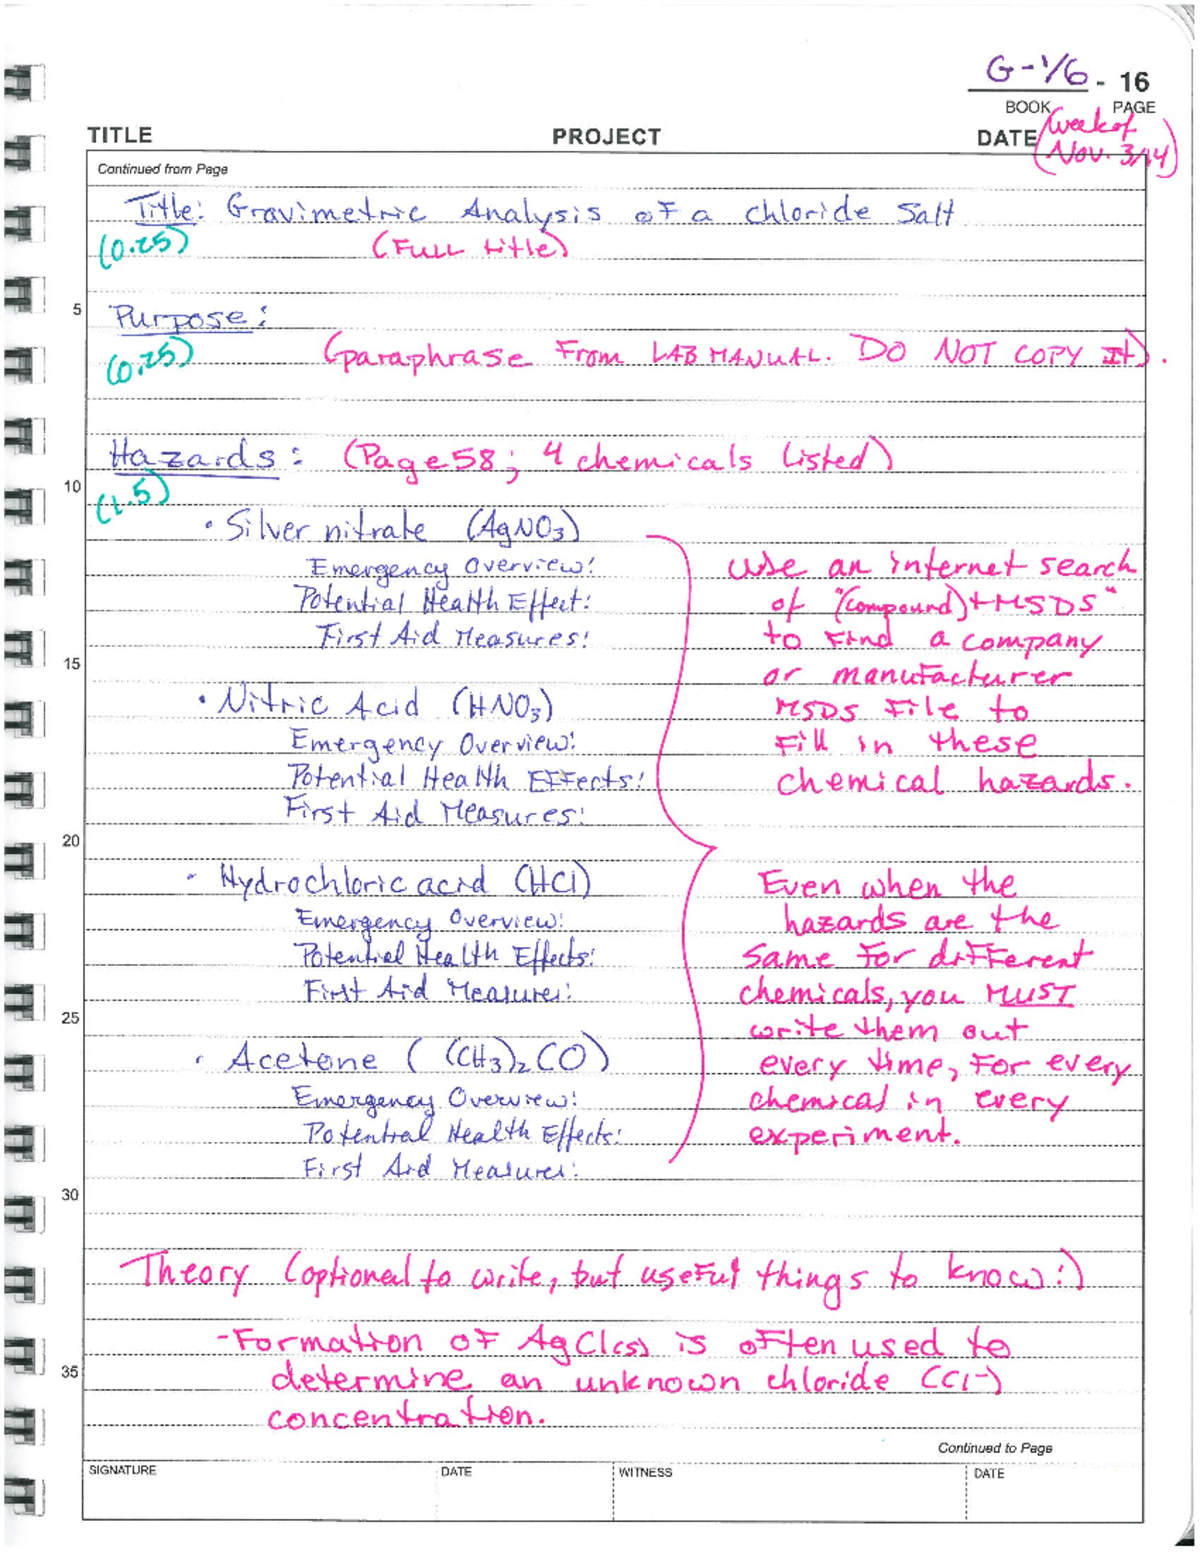 G-1/6 - 16
BOOK PAGE
TITLE PROJECT DATE (Week of Nov. 3/14)
Continued from Page
Title: Gravimetric Analysis of a chloride Salt
(0.25) (Full title)
5
Purpose:
(0.25) (paraphrase from LAB MANUAL. DO NOT COPY It).
Hazards: (Page 58; 4 chemicals listed)
10
(1.5)
• Silver nitrate (AgNO3)
Emergency Overview:
Potential Health Effect:
First Aid Measures:
15
• Nitric Acid (HNO3)
Emergency Overview:
Potential Health Effects:
First Aid Measures:
20
• Hydrochloric acid (HCl)
Emergency Overview:
Potential Health Effects:
First Aid Measures:
25
• Acetone ((CH3)2CO)
Emergency Overview:
Potential Health Effects:
First Aid Measures:
30
use an internet search
of "(compound) + MSDS"
to find a company
or manufacturer
MSDS file to
fill in these
chemical hazards.
Even when the
hazards are the
same for different
chemicals, you MUST
write them out
every time, for every
chemical in every
experiment.
Theory (optional to write, but useful things to know :)
-Formation of AgCl(s) is often used to
35
determine an unknown chloride (Cl-)
concentration.
Continued to Page
SIGNATURE DATE WITNESS DATE